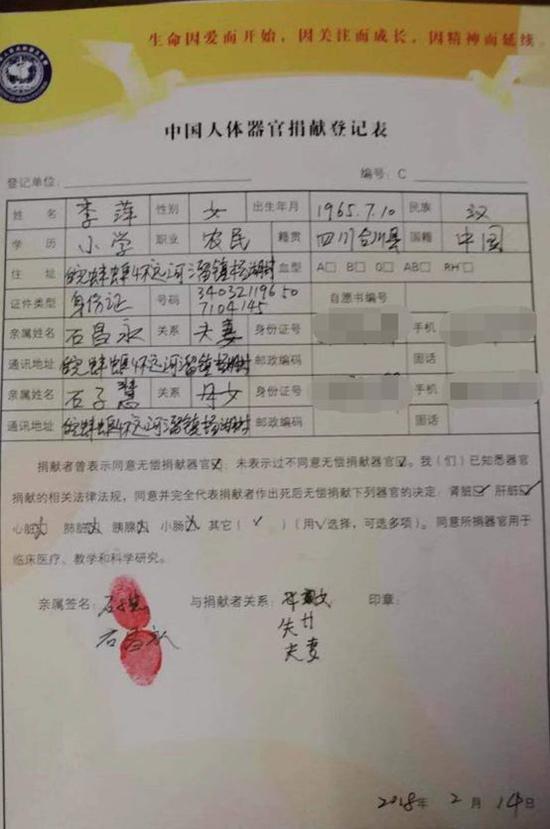 生命因爱而开始，因关注而成长，因精神而延续
中国人体器官捐献登记表
登记单位： 编号：C
姓 名 李萍 性别 女 出生年月 1965.7.10 民族 汉
学 历 小学 职业 农民 籍贯 四川合川县 国籍 中国
住 址 皖蚌埠怀远河溜镇杨湖村 血型 A□ B□ O□ AB□ RH□
证件类型 身份证 号码 340321196507104145 自愿书编号
亲属姓名 石昌永 关系 夫妻 身份证号 手机
通讯地址 皖蚌埠怀远河溜镇杨湖村 邮政编码 固话
亲属姓名 石子慧 关系 母女 身份证号 手机
通讯地址 皖蚌埠怀远河溜镇杨湖村 邮政编码 固话
捐献者曾表示同意无偿捐献器官☑；未表示过不同意无偿捐献器官☑。我（们）已知悉器官
捐献的相关法律法规，同意并完全代表捐献者作出死后无偿捐献下列器官的决定：肾脏☑肝脏☑
心脏☑ 肺脏☑ 胰腺☑ 小肠☑ 其它（ √ ）（用√选择，可选多项）。同意所捐器官用于
临床医疗、教学和科学研究。
亲属签名： 与捐献者关系： 印章：
石昌永
夫妻
2018年 2月 14日